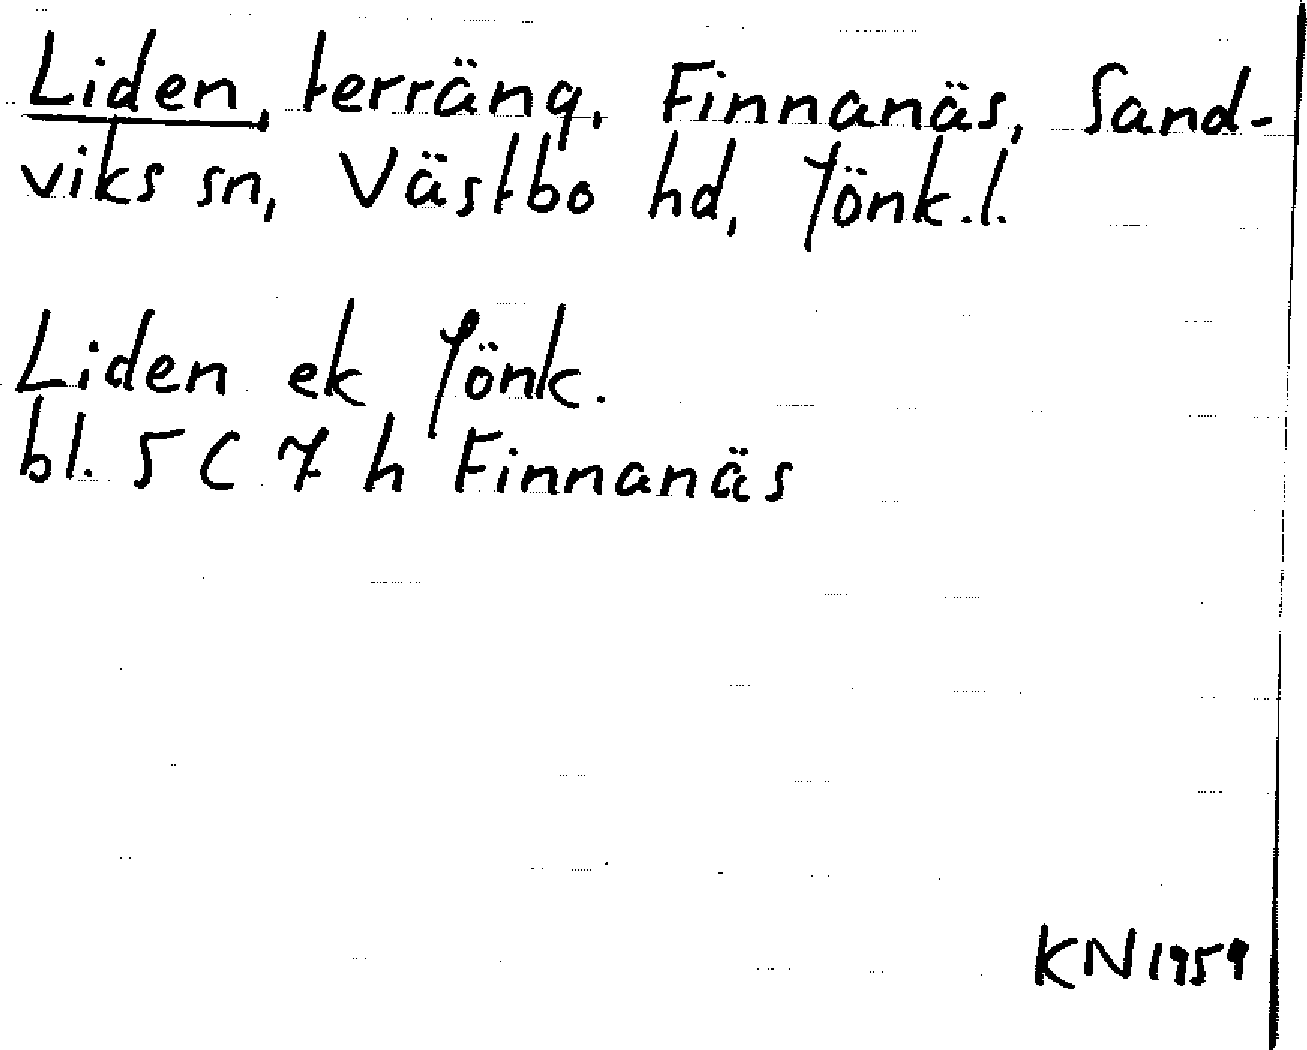 Liden, terräng, Finnanäs, Sand-
viks sn, Västbo hd, Jönk.l.
Liden ek Jönk.
bl. 5 C 7 h Finnanäs
KN 1959